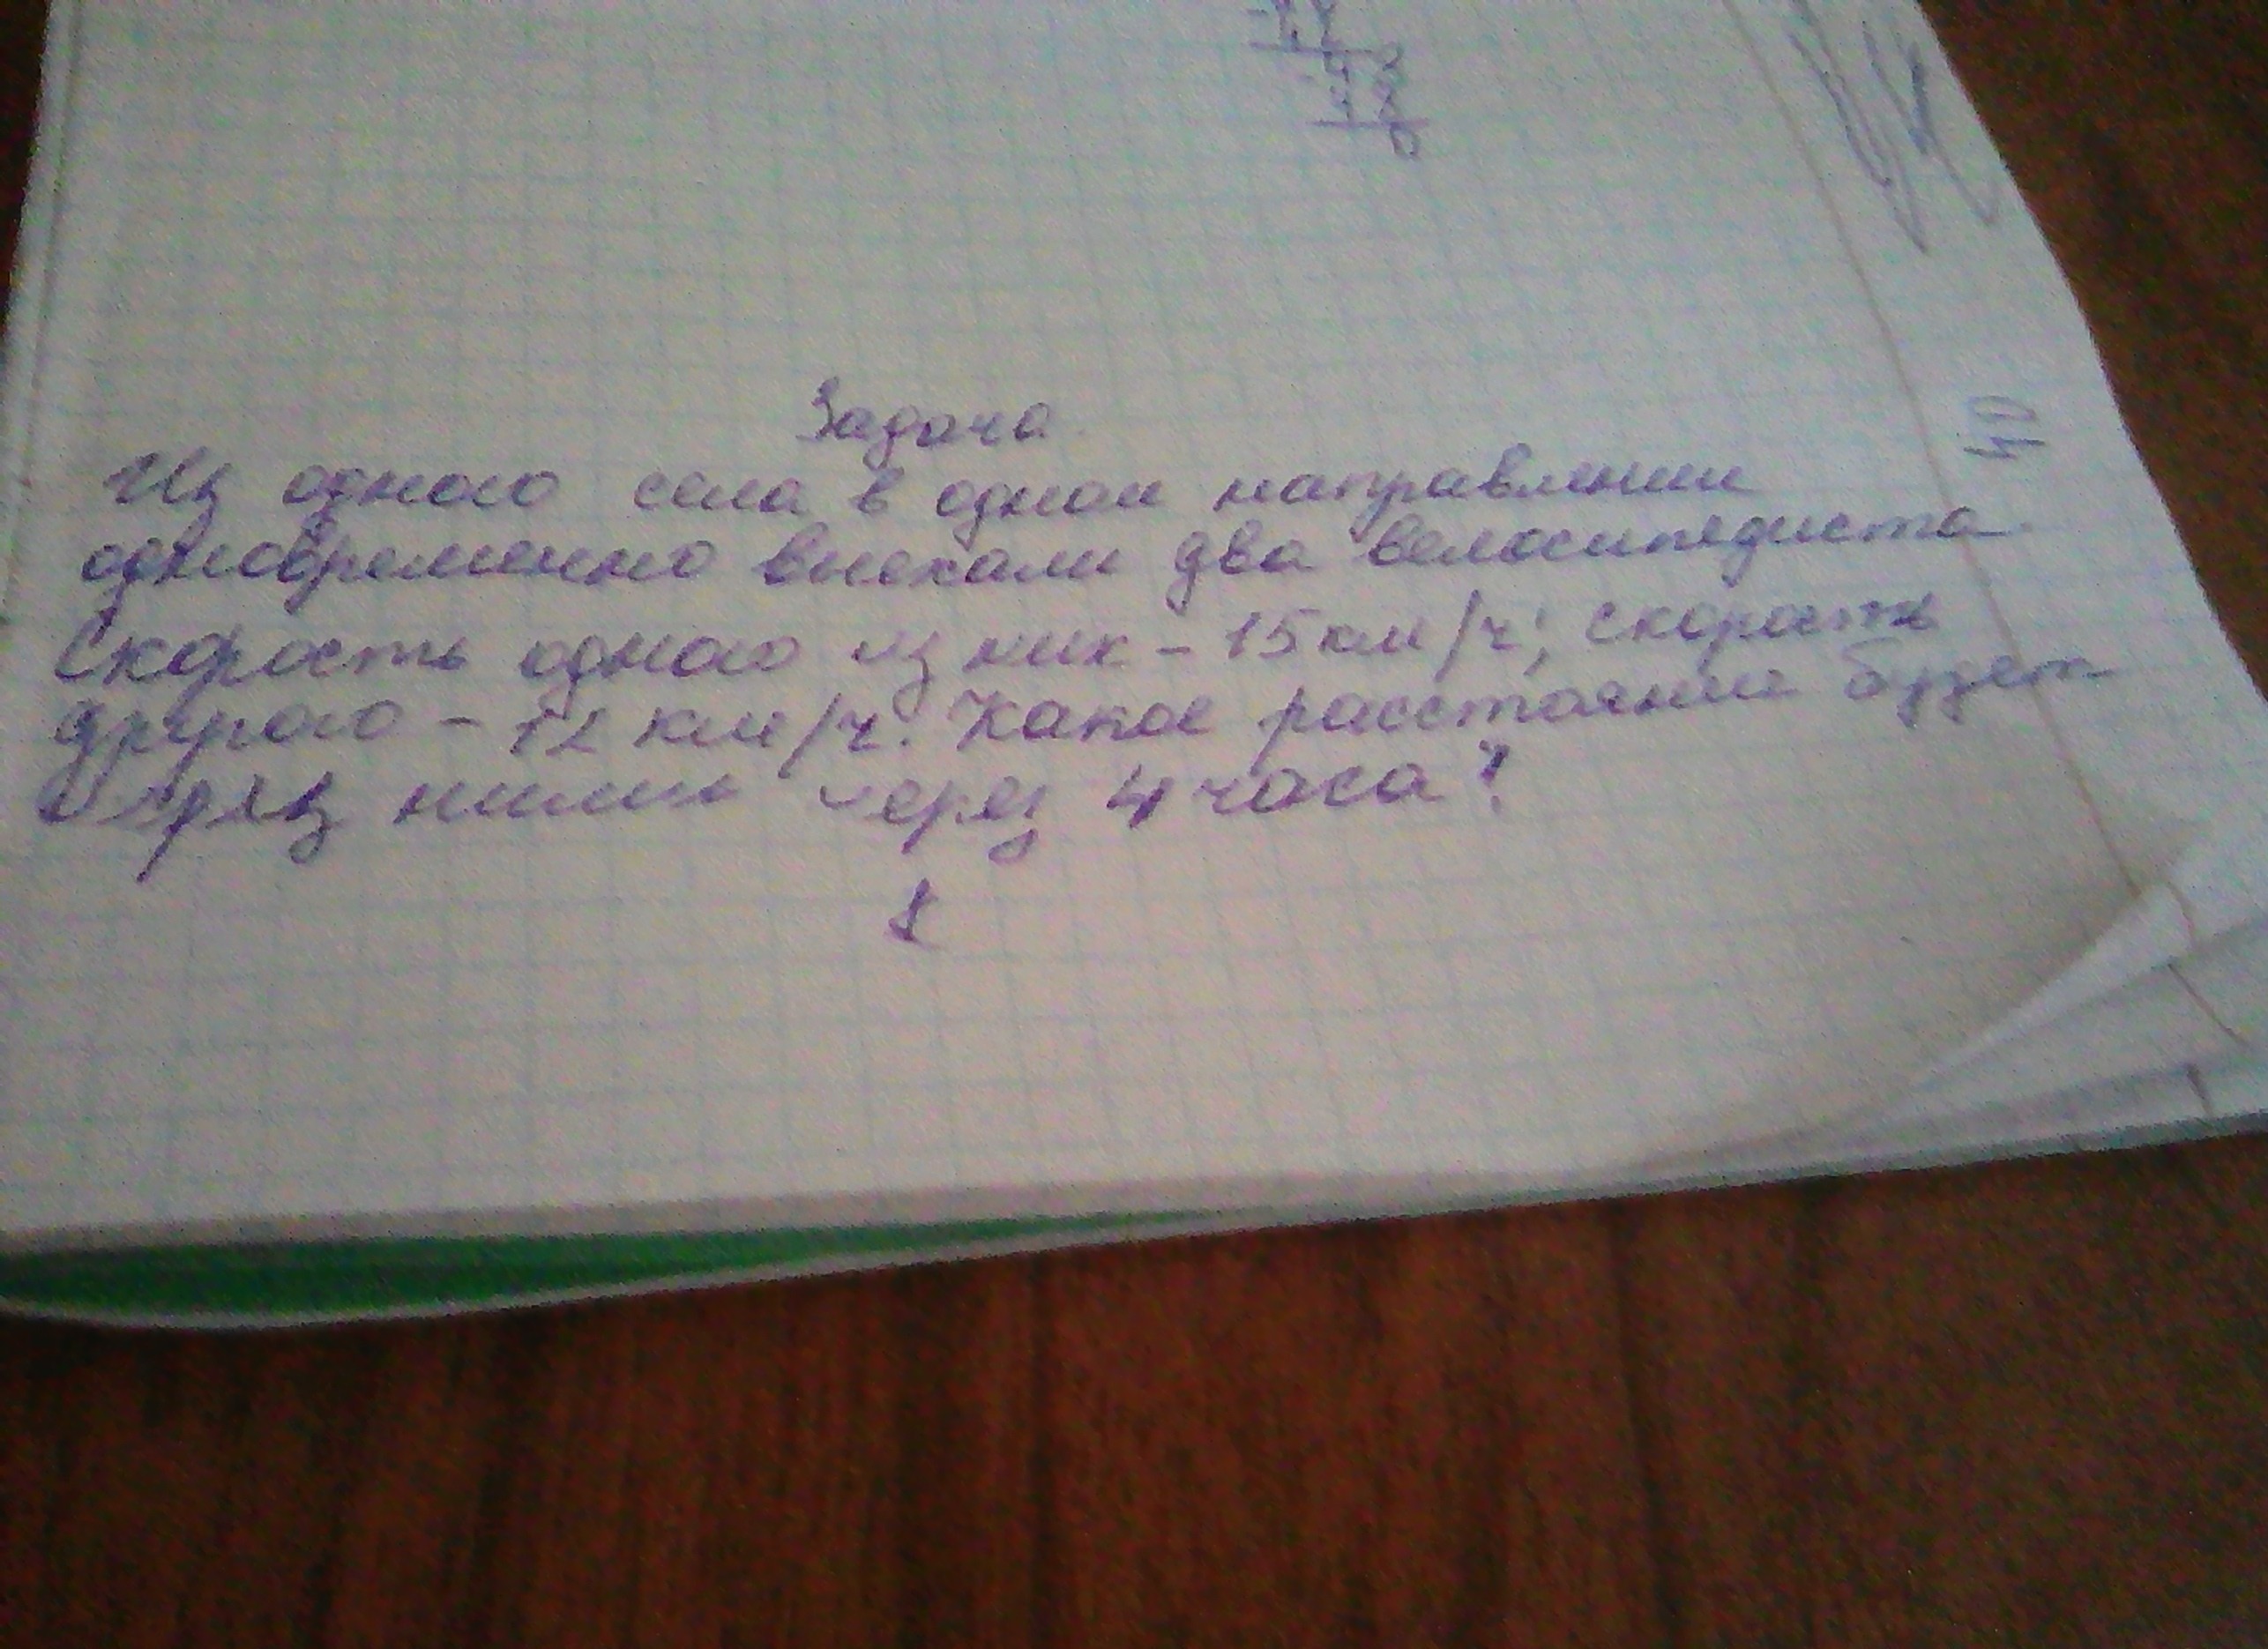 48
48
0
40
Задача
Из одного села в одном направлении
одновременно выехали два велосипедиста.
Скорость одного из них - 15 км/ч, скорость
другого - 12 км/ч. Какое расстояние будет
ними через 4 часа?